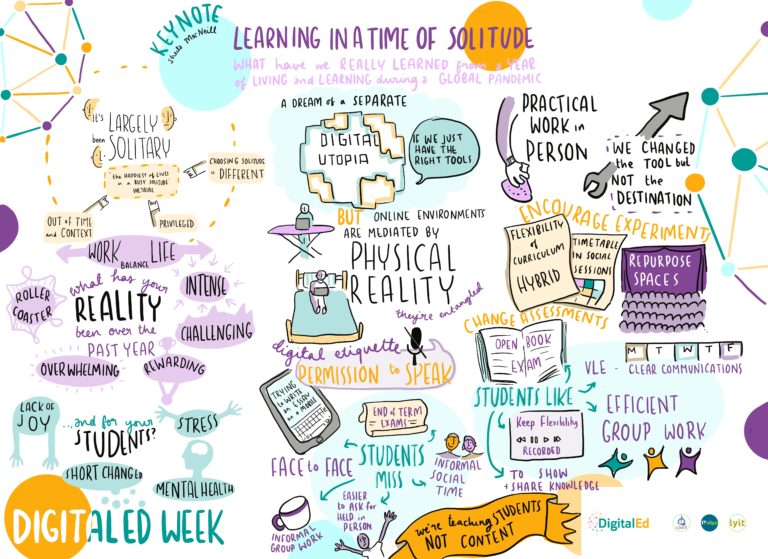 KEYNOTE
Sheila MacNeill
LEARNING IN A TIME OF SOLITUDE
WHAT have we REALLY LEARNED from a YEAR
of LIVING and LEARNING during a GLOBAL PANDEMIC
It's
LARGELY
been SOLITARY
the HAPPIEST of LIVES
in a BUSY SOLITUDE
VOLTAIRE
CHOOSING SOLITUDE
is DIFFERENT
OUT of TIME
and CONTEXT
PRIVILEGED
WORK LIFE
BALANCE
what has your
REALITY
been over the
PAST YEAR
ROLLER
COASTER
INTENSE
CHALLENGING
OVERWHELMING
REWARDING
LACK OF
JOY
...and for your
STUDENTS?
STRESS
SHORT CHANGED
MENTAL HEALTH
DIGITAL ED WEEK
A DREAM of a SEPARATE
DIGITAL
UTOPIA
IF WE JUST
HAVE THE
RIGHT TOOLS
BUT ONLINE ENVIRONMENTS
ARE MEDIATED BY
PHYSICAL
REALITY
they're entangled
digital etiquette
PERMISSION to SPEAK
TRYING
to WRITE
an ESSAY
on a MOBILE
END of TERM
EXAMS
FACE to FACE
STUDENTS
MISS
INFORMAL
SOCIAL
TIME
EASIER
to ASK for
HELP in
PERSON
INFORMAL
GROUP WORK
PRACTICAL
WORK in
PERSON
WE CHANGED
the TOOL but
NOT the
DESTINATION
ENCOURAGE EXPERIMENTS
FLEXIBILITY
of
CURRICULUM
HYBRID
TIMETABLE
IN SOCIAL
SESSIONS
REPURPOSE
SPACES
CHANGE ASSESSMENTS
OPEN BOOK
EXAM
M T W T F
VLE - CLEAR COMMUNICATIONS
STUDENTS LIKE
EFFICIENT
GROUP WORK
Keep Flexibility
RECORDED
TO SHOW
+ SHARE KNOWLEDGE
we're teaching STUDENTS
NOT CONTENT
DigitalEd
lyit